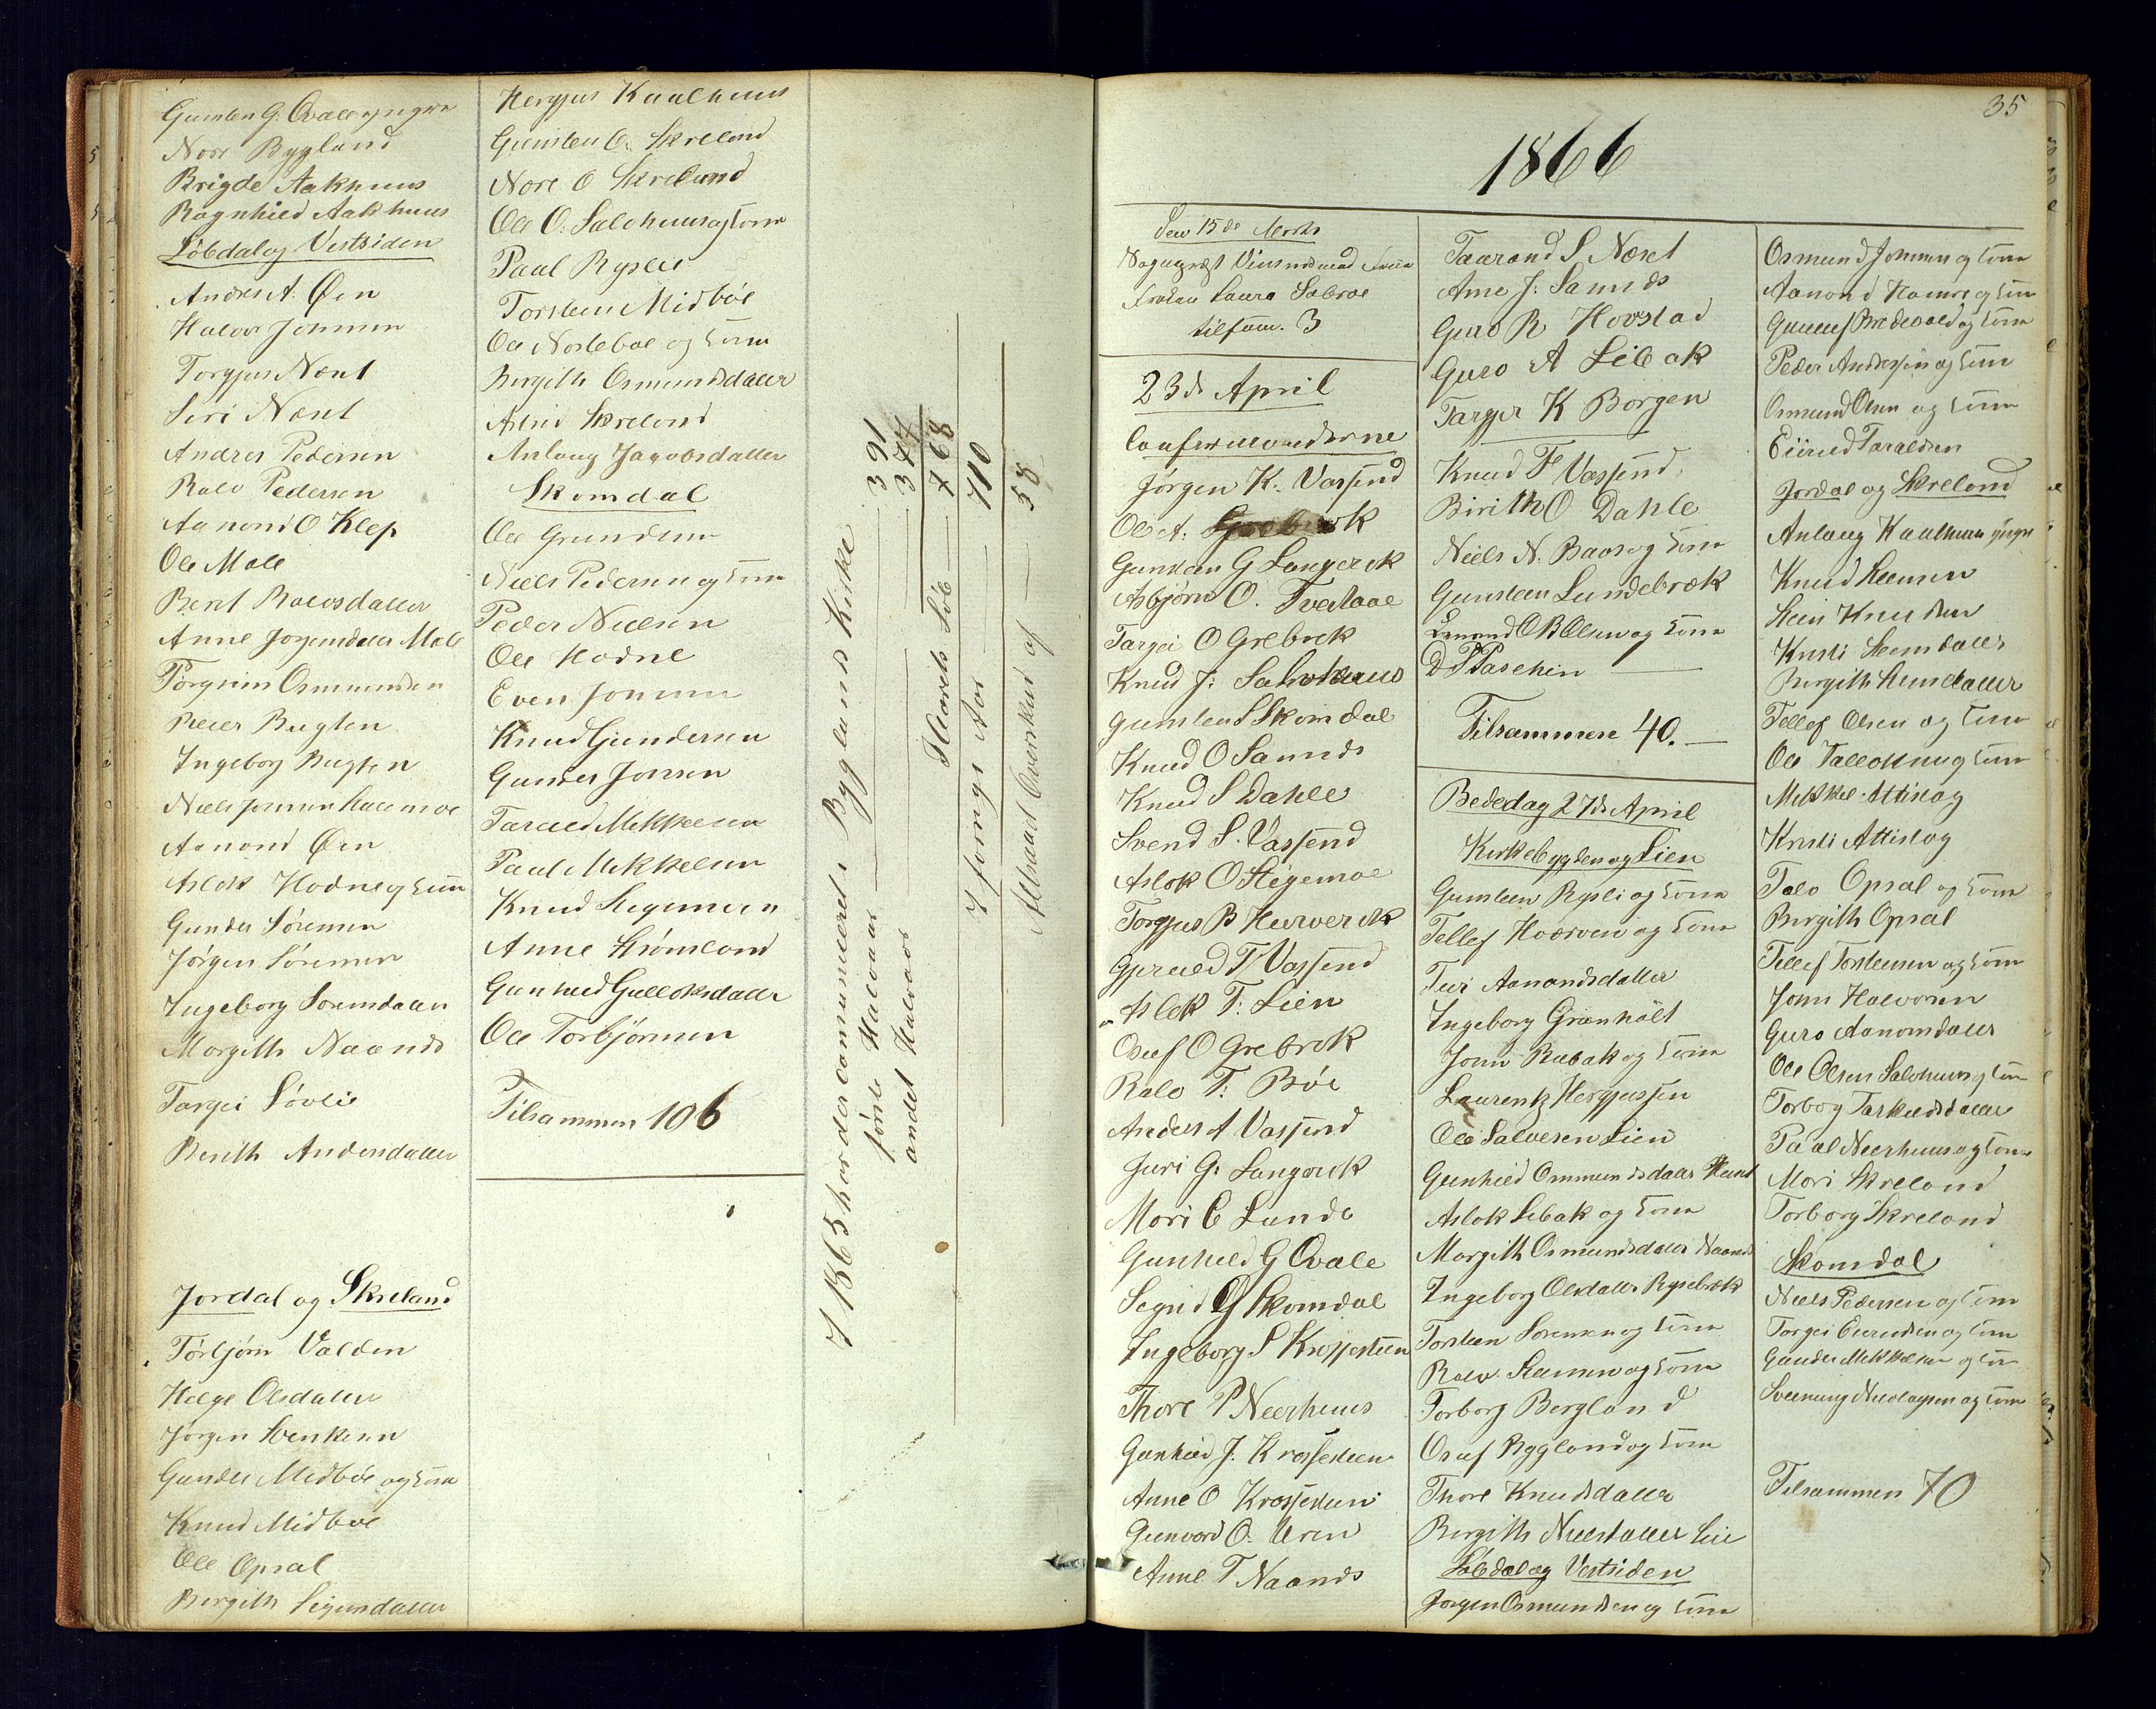 Gunsten G: Qvale yngre
Nore Bygland
Brigde Aakhuus
Ragnhild Aakhuus
Løbdal og Vestsiden
Andres A. Øen
Halvor Jonsen
Torgjus Næset
Siri Næset
Andres Pedersen
Rolv Pedersen
Aanond O Klep
Ole Mole
Berit Rolvsdatter
Anne Jørgensdatter Mole
Torgrim Osmundsen
Peder Bugten
Ingeborg Bugten
Niels Jonsen Kallemoe
Aanond Øen
Aslak Hodne og Kone
Gunder Sørensen
Jørgen Sørensen
Ingeborg Sørensdatter
Margith Naands
Torgei Løvlie
Berith Andersdatter
Jordal og Skreland
Torbjørn Valden
Helge Olsdatter
Jørgen Henksen
Gunder Midbøe og Kone
Knud Midbøe
Ole Opsal
Bergith Sigurdsdatter
Hergjus Kaalhuus
Gunsten O. Skreland
Nore O Skreland
Ole O: Salohuus og Kone
Paal Ryslie
Torsten Midbøe
Ole Nostebøe og Kone
Bergith Osmundsdatter
Astrid Skreland
Anlaug Jacobsdatter
Skomdal
Ole Gundersen
Niels Pedersen og Kone
Peder Nielsen
Ole Hodne
Even Jonsen
Knud Gundersen
Gunder Jonsen
Tarald Mikkelsen
Paal Mikkelsen
Knud Stegemoen
Anne Strømland
Gunhild Gulleksdatter
Ole Torbjørnsen
Tilsammen 106
I 1865 har der communiceret i Bygland Kirke
første Halvaar — 391
andet Halvaar — 377
Aarets Løb — 768
I forrige Aar — 710
Altsaa et Overskud af — 58
35
1866
Den 15de Marts
tilsam. 3
23de April
Confirmanderne
Jørgen K. Vassend
Ole A.
Gunsten G Langerek
Asbjørn O. Tveitaae
Targei O Grebrok
Knud J: Salvehuus
Gunsten S Skomdal
Knud O Sannds
Knud S Dahle
Svend S. Vassend
Aslak O Stegemoe
Torgjus B Hurverek
Gjeruld T Vassend
Aslak T. Lien
Oluf O Grebrok
Rolv T: Bøe
Anders A Vassend
Juri G: Langerek
Mari E Lunde
Gunhild G Qvale
Segrid G Skomdal
Ingeborg S Krossesteen
Thore P Neerhuus
Gunhild J. Krossesteen
Anne O Krossesteen
Gunvord O. Uren
Anne T Naands
Taarand S Næset
Anne J. Sannds
Guro R Hovstad
Guro A Libak
Targjer K Borgen
Knud F Vassend
Birith O Dahle
Niels N. Baas og Kone
Gunsteen Lundebrek
O B Olsen og Kone
D P Paschin
Tilsammen 40.
Bededag 27de April
Kirkebygden og Lien
Gunsteen Rysli og Kone
Tellef Hoorven og Kone
Turi Aanondsdatter
Ingeborg Grønholt
Jonn Rabak og Kone
Laurentz Hergjussen
Ole Salvesen Lien
Gunhild Ommundsdatter
Aslak Libak og Kone
Margith Osmundsdatter Naands
Ingeborg Olsdatter Rysebrek
Torsten Sørensen og Kone
Rolv Steensen og Kone
Torborg Bergland
Oluf Bygland og Kone
Thore Knudsdatter
Bergith Nielsdatter Lie
Løbdal og Vestsiden
Jørgen Osmundsen og Kone
Osmund Jonsen og Kone
Aanond Hamre og Kone
Gunnuf Bredvold og Kone
Peder Anderssen og Kone
Osmund Olsen og Kone
Eivind Taraldsen
Jordal og Skreland
Anlaug Kaalhuus yngre
Knud Steensen
Steen Knudsen
Kristi Steensdatter
Bergith Steensdatter
Tellef Olsen og Kone
Ole Tallaksen og Kone
Mikkel Attislag
Kristi Attislag
Tolv Opsal og Kone
Bergith Opsal
Tellef Torstensen og Kone
Jonn Halvorsen
Guro Aanonsdatter
Ole Olsen Salohuus og Kone
Torborg Tarkeldsdatter
Paal Neerhuus og Kone
Mari Skreland
Torborg Skreland
Skomdal
Niels Pedersen og Kone
Torgei Eivindsen og Kone
Gunder Mikkelsen og Kone
Sveinung Nicolaysen og Kone
Tilsammen 70